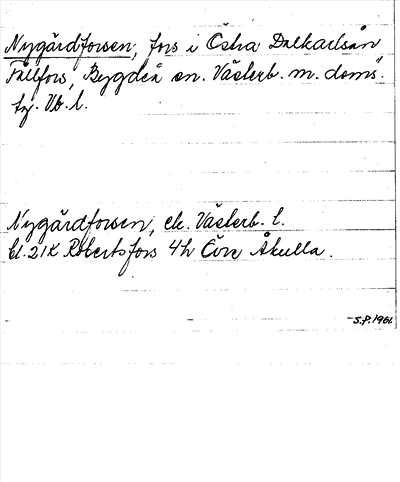 Nygårdforsen, fors i Östra Dalkarlsån
Tällfors, Bygdeå sn. Västerb. m. doms.
tj. Vb. l.
Nygårdforsen, ek. Västerb. l.
bl. 21K Robertsfors 4h Övre Åkulla.
S.P. 1961.